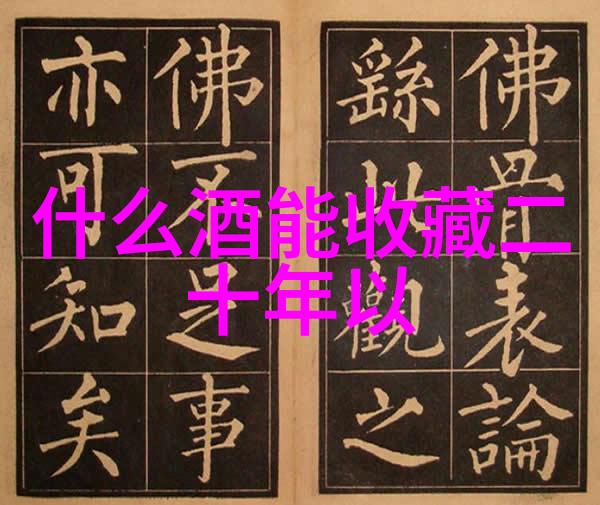 什么酒能收藏二
十年以
佛骨表論
繇此觀之
佛不足事
亦可知矣